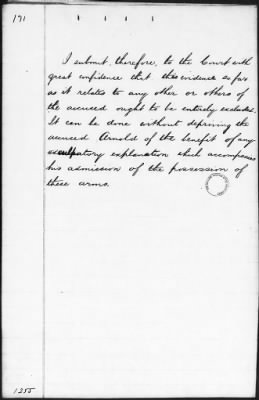 171
I submit, therefore, to the Court with
great confidence that this evidence so far
as it relates to any other or others of
the accused ought to be entirely excluded.
It can be done without depriving the
accused Arnold of the benefit of any
exculpatory explanation which accompanies
his admission of the possession of
these arms.
1255